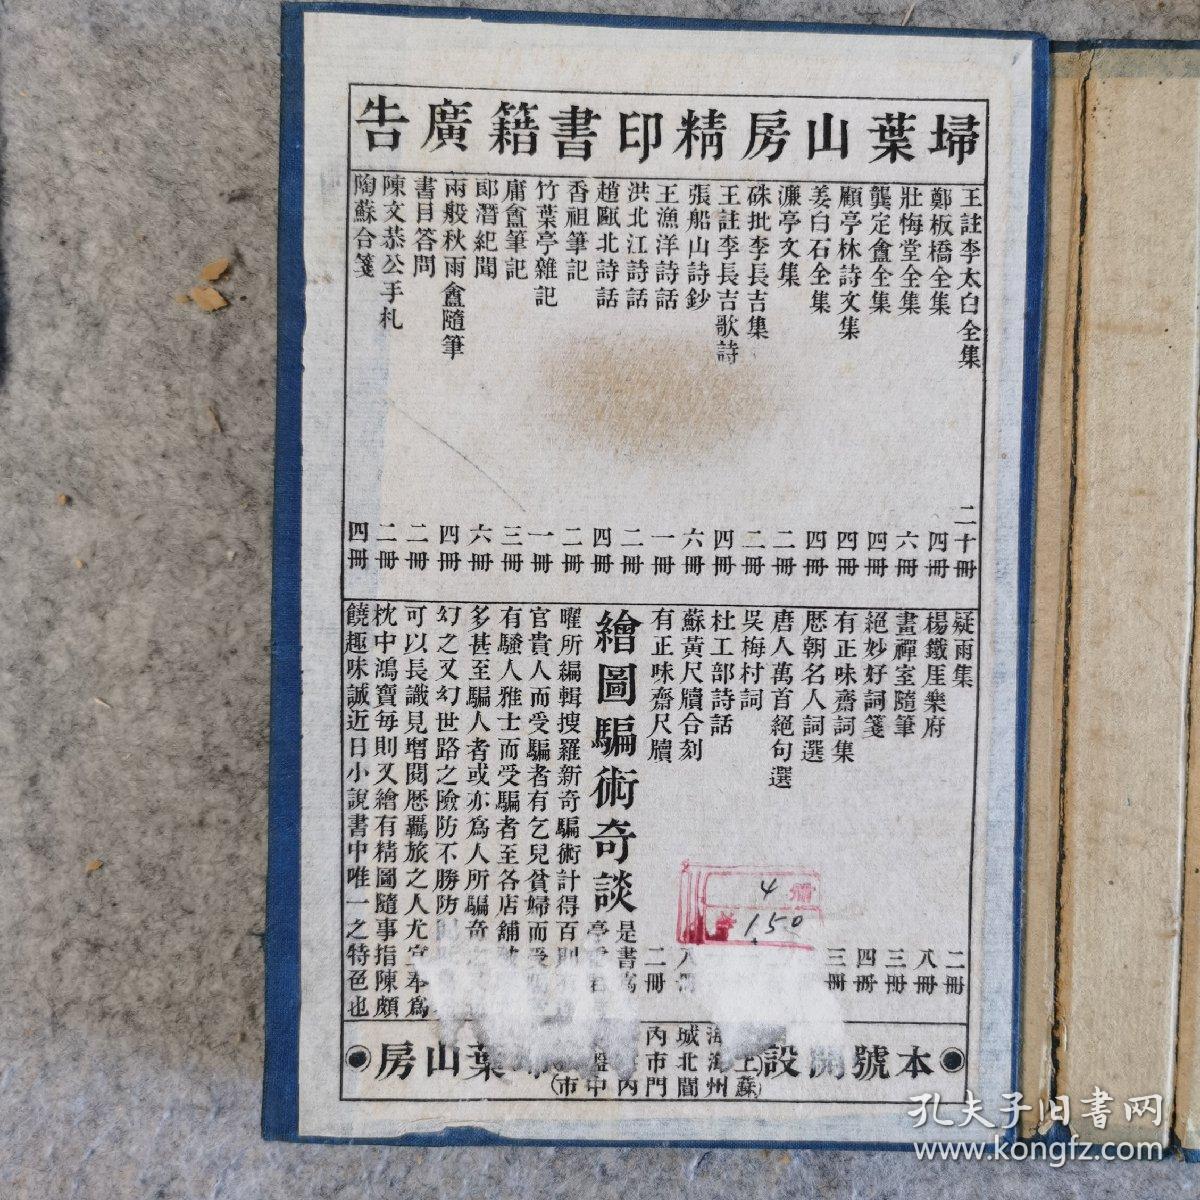 掃葉山房精印書籍廣告
王註李太白全集 二十冊
鄭板橋全集 四冊
壯悔堂全集 六冊
龔定盦全集 四冊
顧亭林詩文集 四冊
姜白石全集 四冊
濂亭文集 二冊
硃批李長吉集 二冊
王註李長吉歌詩 四冊
張船山詩鈔 六冊
王漁洋詩話 一冊
洪北江詩話 二冊
趙甌北詩話 四冊
香祖筆記 二冊
竹葉亭雜記 一冊
庸盦筆記 三冊
郎潛紀聞 六冊
兩般秋雨盦隨筆 四冊
書目答問 二冊
陳文恭公手札 二冊
陶蘇合箋 四冊
疑雨集 二冊
楊鐵厓樂府 八冊
畫禪室隨筆 三冊
絕妙好詞箋 四冊
有正味齋詞集 三冊
歷朝名人詞選
唐人萬首絕句選
吳梅村詞
杜工部詩話
蘇黃尺牘合刻 八冊
有正味齋尺牘 二冊
繪圖騙術奇談 是書為
亭
曜所編輯搜羅新奇騙術計得百則
官貴人而受騙者有乞兒貧婦而受
有騷人雅士而受騙者至各店舖
多甚至騙人者或亦為人所騙奇
幻之又幻世路之險防不勝防
可以長識見增閱歷羈旅之人尤宜奉為
枕中鴻寶每則又繪有精圖隨事指陳頗
饒趣味誠近日小說書中唯一之特色也
本號開設
上海
城北
內市
蘇州
閶門
內
中市
掃葉山房
價
4
150
孔夫子旧書网
www.kongfz.com